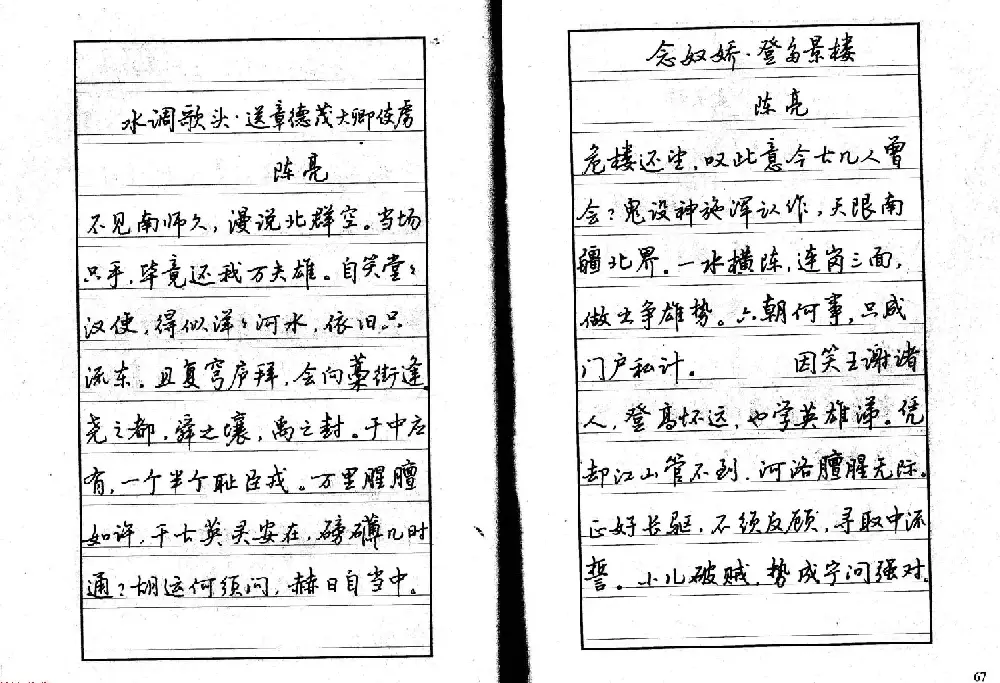 水调歌头·送章德茂大卿使虏
陈亮
不见南师久，漫说北群空。当场
只手，毕竟还我万夫雄。自笑堂々
汉使，得似洋々河水，依旧只
流东。且复穹庐拜，会向藁街逢。
尧之都，舜之壤，禹之封。于中应
有，一个半个耻臣戎。万里腥膻
如许，千古英灵安在，磅礴几时
通？胡运何须问，赫日自当中。
念奴娇·登多景楼
陈亮
危楼还望，叹此意今古几人曾
会？鬼设神施浑认作，天限南
疆北界。一水横陈，连岗三面，
做出争雄势。六朝何事，只成
门户私计。 因笑王谢诸
人，登高怀远，也学英雄涕。凭
却江山管不到，河洛膻腥无际。
正好长驱，不须反顾，寻取中流
誓。小儿破贼，势成宁问强对。
67